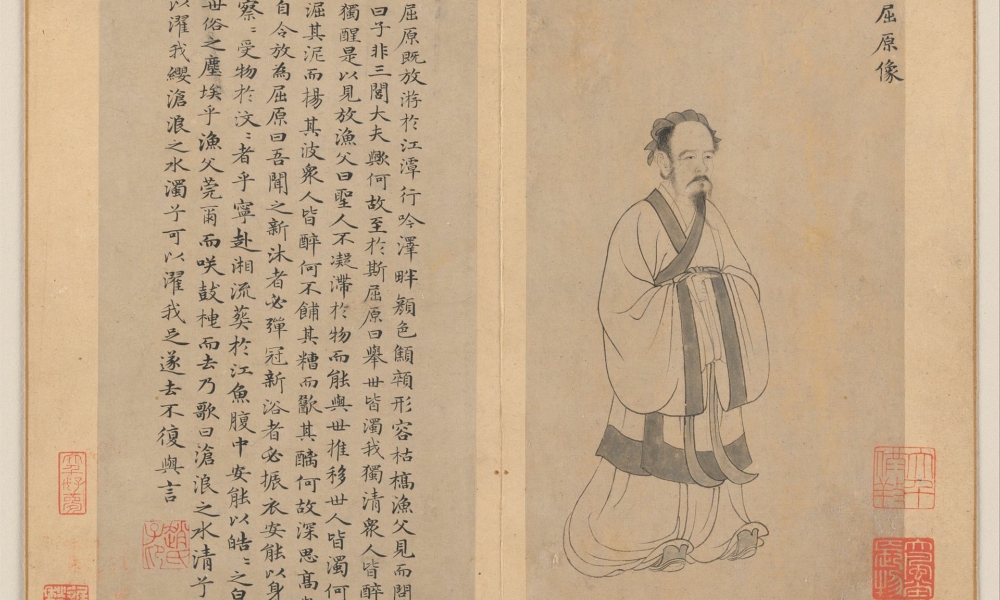 屈原像
屈原既放游於江潭行吟澤畔顏色顦顇形容枯槁漁父見而問
曰子非三閭大夫歟何故至於斯屈原曰舉世皆濁我獨清衆人皆醉
獨醒是以見放漁父曰聖人不凝滯於物而能與世推移世人皆濁何
淈其泥而揚其波衆人皆醉何不餔其糟而歠其醨何故深思高
自令放為屈原曰吾聞之新沐者必彈冠新浴者必振衣安能以身
察〻受物於汶〻者乎寧赴湘流葬於江魚腹中安能以皓〻之白
世俗之塵埃乎漁父莞爾而咲鼓枻而去乃歌曰滄浪之水清兮
以濯我纓滄浪之水濁兮可以濯我足遂去不復與言
趙氏子昂